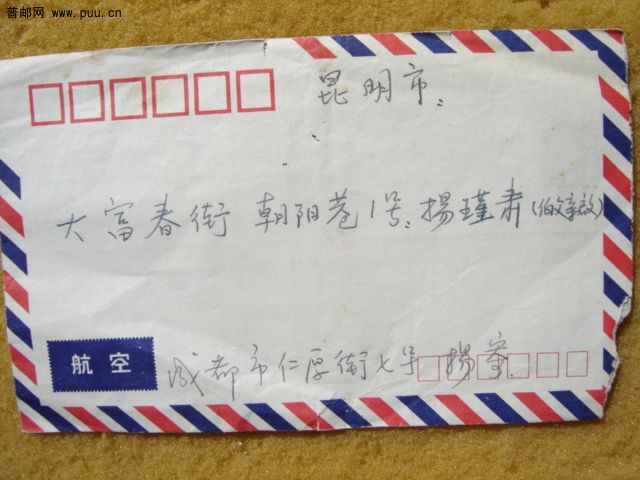 普邮网 www.puu.cn
昆明市
大富春街 朝阳巷1号 揚瑾肃(伯父亲启)
航空
成都市仁厚街七号 揚寄